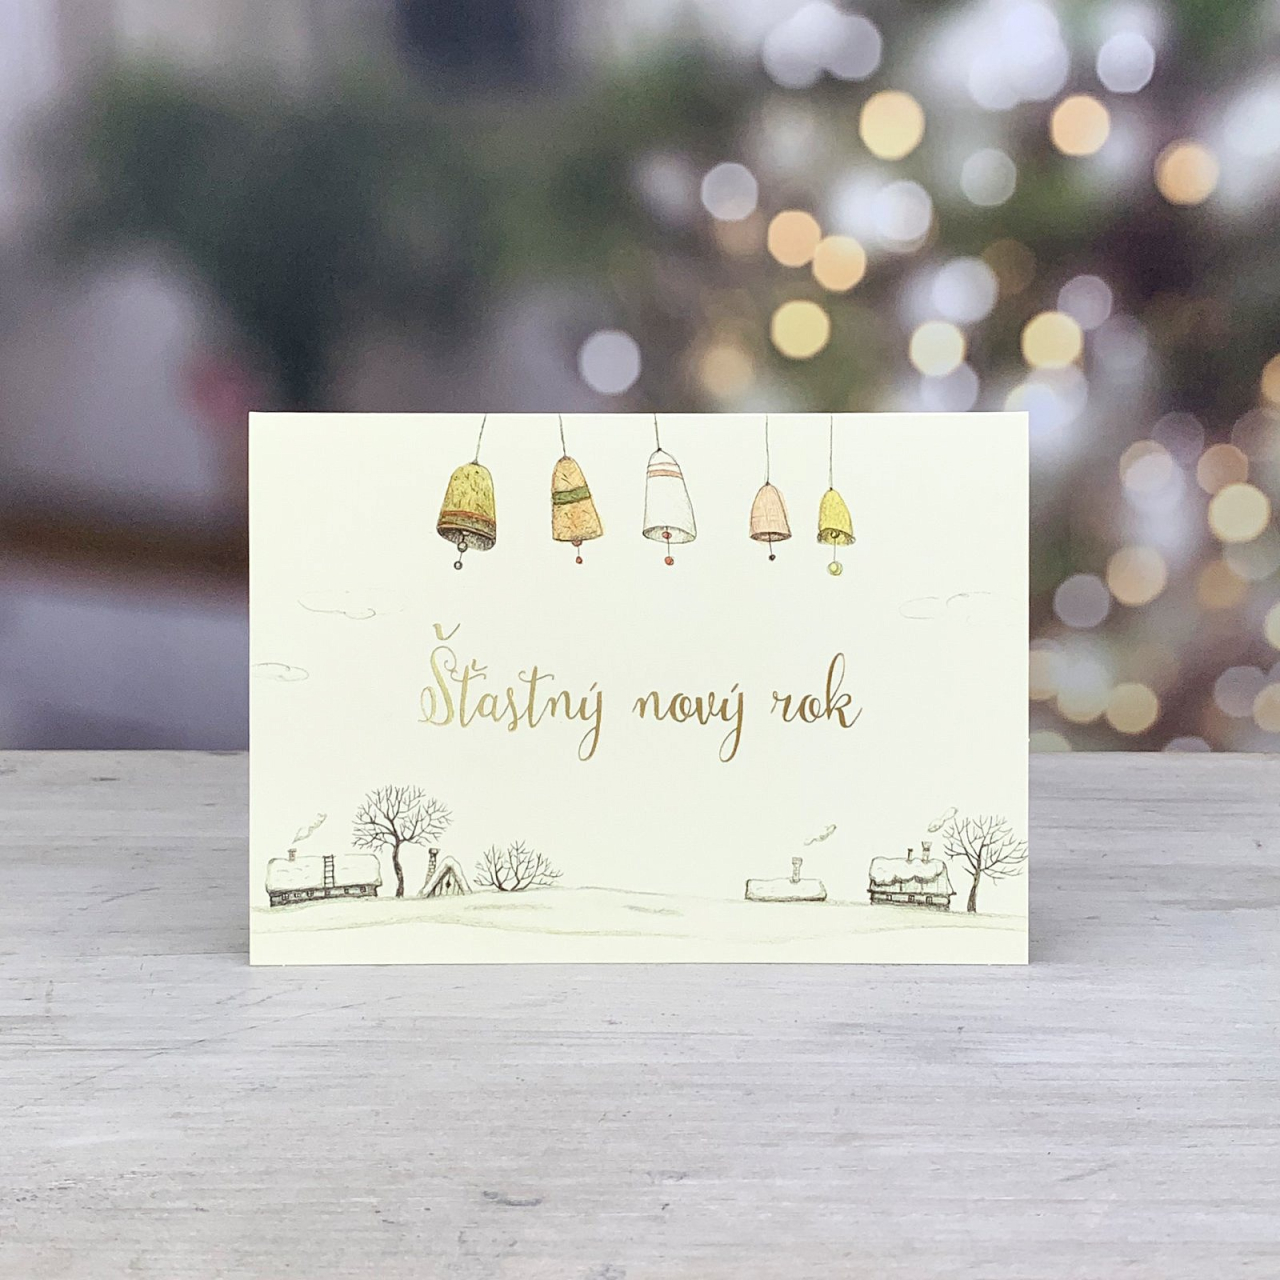 Šťastný nový rok